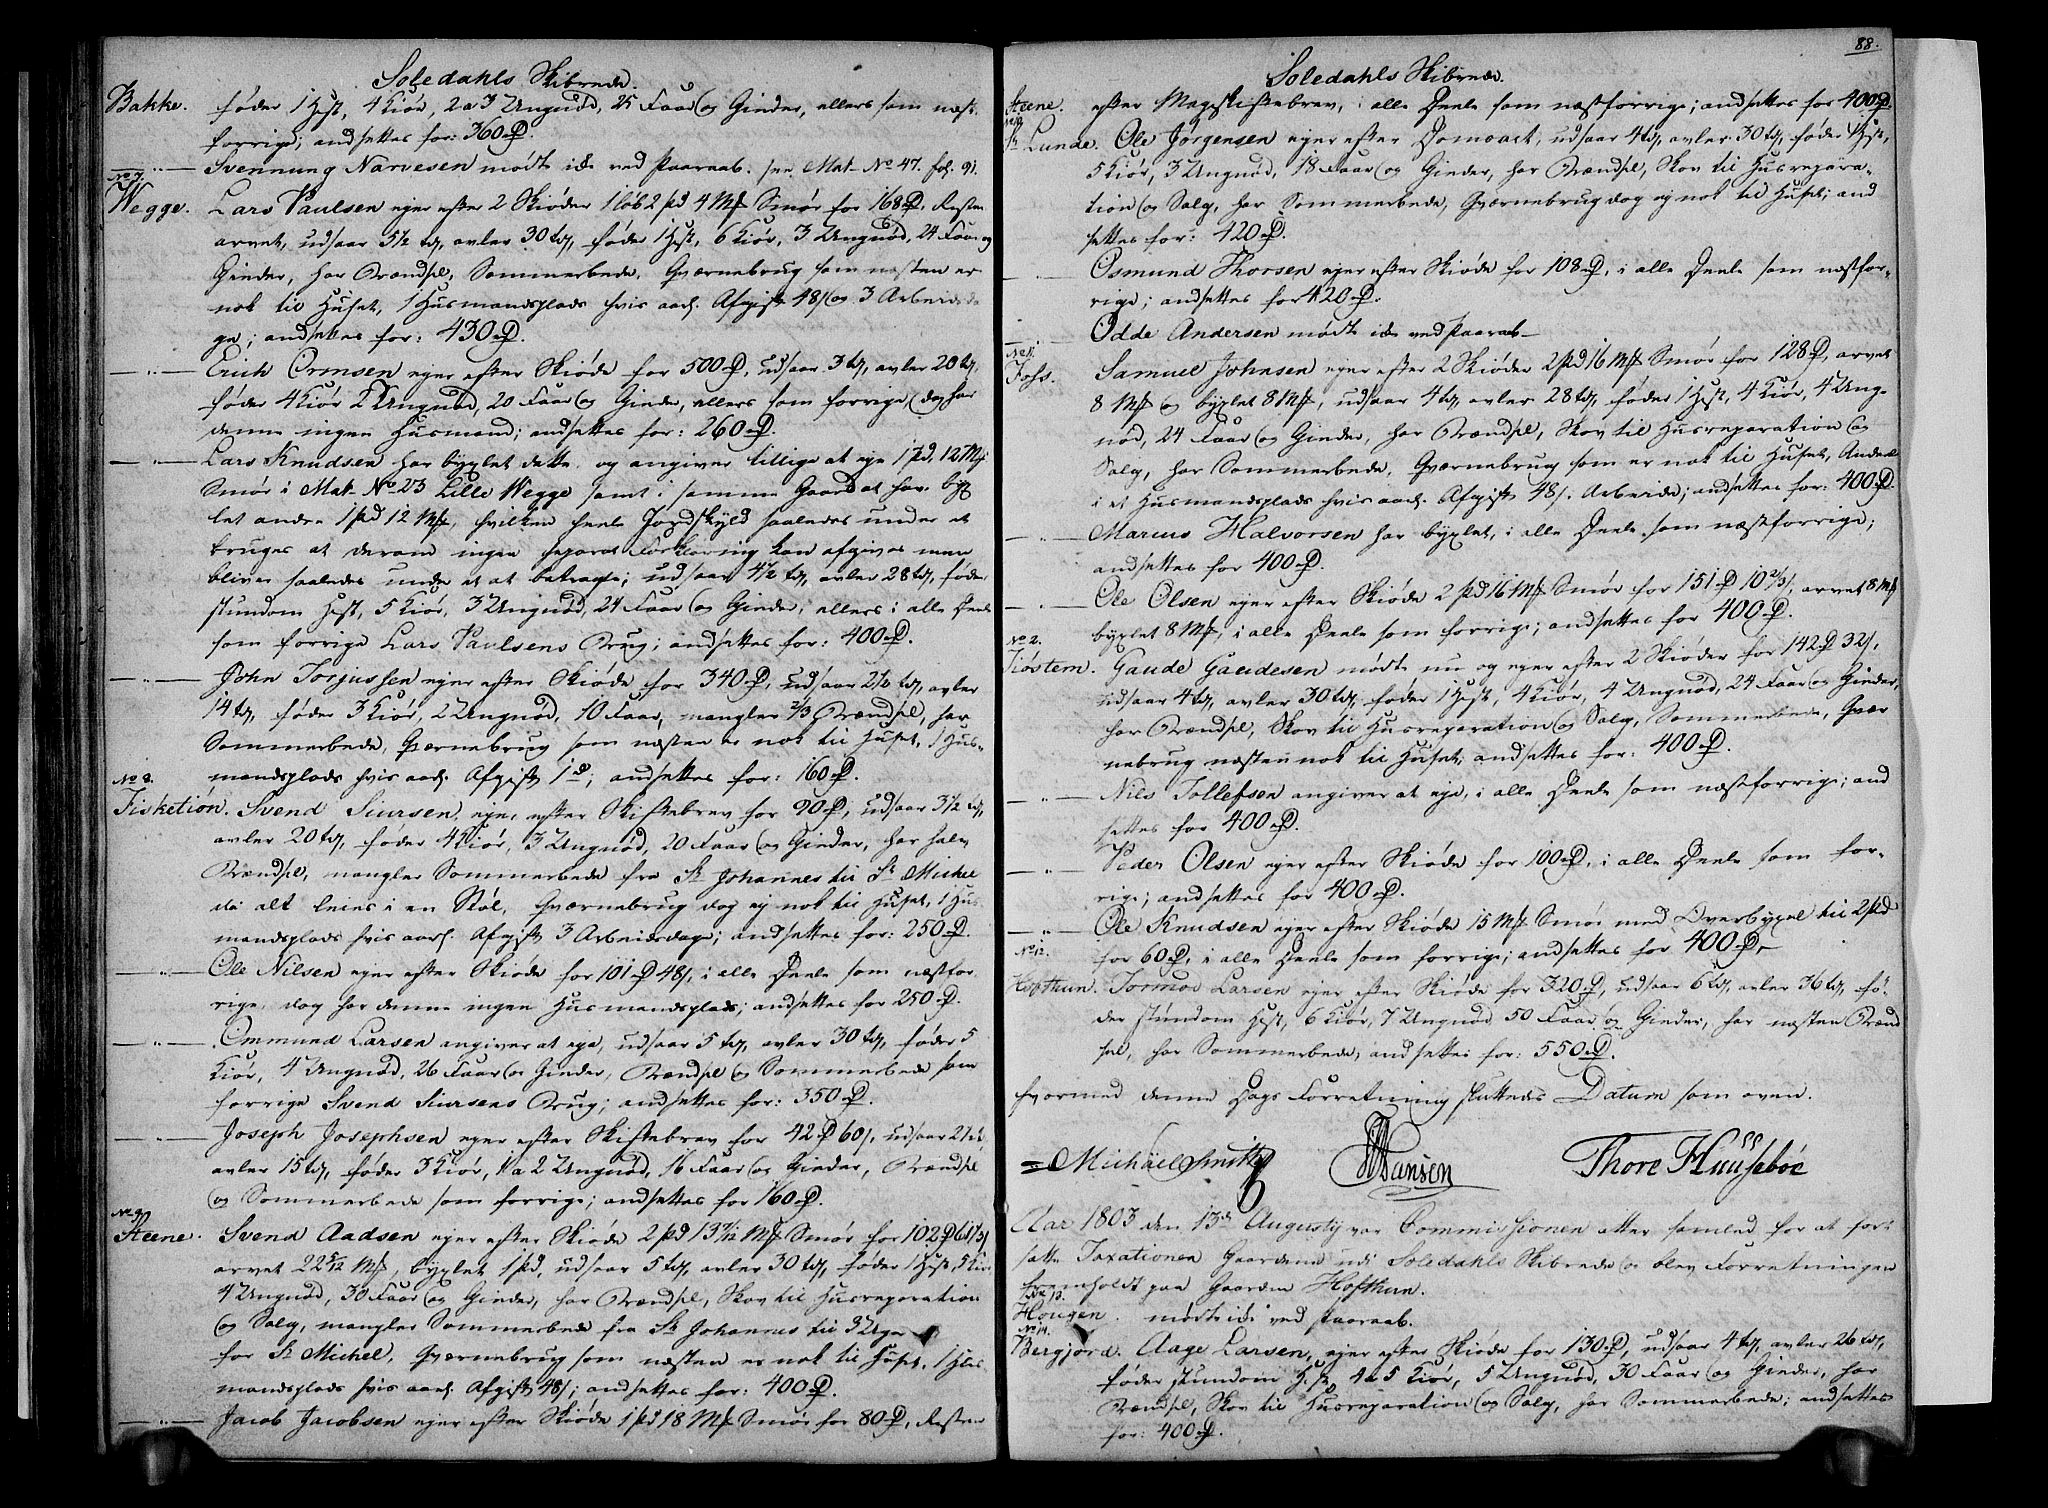 Soledahls Skibrede.
Bakke. føder 1 Hest, 4 Kiør, 2 a 3 Ungnød, 25 Faar og Gieder, ellers som næst
forrige; andsettes for: 360 Rd.
—„— Svennung Narvesen mødte icke ved Paaraab. see Mat. No 47. fol. 91.
No 7.
Wegge. Lars Paulsen ejer efter 2 Skiøder 1 løb 2 pd 4 Mk Smør for 168 Rd, Resten
arvet, udsaar 5½ td, avler 30 td, føder 1 Hest, 6 Kiør, 3 Ungnød, 24 Faar og
Gieder, har Brændsel, Sommerbede, Qværnebrug som næsten er
nok til Huset, 1 Husmandsplads hvis aarl. Afgift 48 s og 3 Arbeidsda
ge; andsettes for: 430 Rd.
—„— Erich Ormsen ejer efter Skiøde for 500 Rd, udsaar 3 td, avler 20 td,
føder 4 Kiør 2 Ungnød, 20 Faar og Gieder, ellers som forrige, dog har
denne ingen Husmand; andsettes for: 260 Rd.
—„— Lars Knudsen har byxlet dette, og angiver tillige at eje 1 pd, 12 Mk
Smør i Mat. No 23 Lille Wegge samt i samme Gaard at have byx
let andre 1 pd 12 Mk, hvilken heele Jordskyld saaledes under et
bruges at derom ingen separat Forklaring kan afgives men
bliver saaledes under et at betragte; udsaar 4½ td, avler 28 td, føder
stundom Hest, 5 Kiør, 3 Ungnød, 24 Faar og Gieder, ellers i alle Deele
som forrige Lars Paulsens Brug; andsettes for: 400 Rd.
—„— John Torjussen ejer efter Skiøde for 340 Rd, udsaar 2½ td, avler
14 td, føder 3 Kiør, 2 Ungnød, 10 Faar, mangler 2/3 Brændsel, har
Sommerbede, Qværnebrug som næsten er nok til Huset, 1 Hus-
mandsplads hvis aarl. Afgift 1 Rd; andsettes for: 160 Rd.
No 8.
Fisketiøn. Svend Siursen, ejer efter Skiftebrev for 90 Rd, udsaar 3½ td,
avler 20 td, føder 4 Kiør, 3 Ungnød, 20 Faar og Gieder, har halv
Brændsel, mangler Sommerbede fra St Johannes til St Michel
da alt leies i en Støl, Qværnebrug dog ej nok til Huset, 1 Hus
mandsplads hvis aarl. Afgift 3 Arbeidsdage; andsettes for: 250 Rd.
—„— Ole Nilsen ejer efter Skiøde for 101 Rd 48 s, i alle Deele som næstfor
rige, dog har denne ingen Husmandsplads; andsettes for 250 Rd.
—„— Ommund Larsen angiver at eje, udsaar 5 td, avler 30 td, føder 5
Kiør, 4 Ungnød, 26 Faar og Gieder, Brændsel og Sommerbede som
forrige Svend Siursens Brug; andsettes for: 350 Rd.
—„— Joseph Josephsen ejer efter Skiftebrev for 42 Rd 60 s, udsaar 2½ td,
avler 15 td, føder 3 Kiør, 1 a 2 Ungnød, 16 Faar og Gieder, Brændsel
og Sommerbede som forrige; andsettes for 160 Rd.
No 9.
Steene. Svend Aadsen ejer efter Skiøde 2 pd 13 7/12 Mk Smør for 102 Rd
arvet 22 5/12 Mk, byxlet 1 pd, udsaar 5 td, avler 30 td, føder 1 Hest, 5 Kiør
4 Ungnød, 30 Faar og Gieder, har Brændsel, Skov til Husreparation
og Salg, mangler Sommerbede fra St Johannes til 3 Uger
før St Michel, Qværnebrug som næsten er nok til Huset, 1 Hus
mandsplads hvis aarl. Afgift 48 s; andsettes for: 400 Rd.
—„— Jacob Jacobsen ejer efter Skiøde 1 pd 18 Mk Smør for 80 Rd, Resten
88.
Soledahls Skibrede.
Steene. efter Mageskiftebrev, i alle Deele som næstforrige; andsettes for 400 Rd.
No 10.
St. Lunde. Ole Jørgensen ejer efter Domsact, udsaar 4 td, avler 30 td, føder Hest,
5 Kiør, 3 Ungnød, 18 Faar og Gieder, har Brændsel, Skov til Husrepara-
tion og Salg, har Sommerbede, Qværnebrug dog ej nok til Huset; and
settes for: 420 Rd.
—„— Osmund Thorsen ejer efter Skiøde for 108 Rd, i alle Deele som næstfor-
rige; andsettes for 420 Rd.
—„— Odde Andersen mødte icke ved Paaraab
No 11.
Foss. Samuel Johnsen ejer efter 2 Skiøder 2 pd 16 Mk Smør for 128 Rd, arvet
8 Mk og byxlet 8 Mk, udsaar 4 td, avler 28 td, føder 1 Hest, 4 Kiør, 4 Ung-
nød, 24 Faar og Gieder, har Brændsel, Skov til Husreparation og
Salg, har Sommerbede, Qværnebrug som er nok til Huset, Andeel
i et Husmandsplads hvis aarl. Afgift 48 s. Arbeide; andsettes for: 400 Rd.
—„— Marius Halvorsen har byxlet, i alle Deele som næstforrige;
andsettes for 400 Rd.
—„— Ole Olsen ejer efter Skiøde 2 pd 16 Mk Smør for 151 Rd 10 2/3 s, arvet 8 Mk
byxlet 8 Mk, i alle Deele som forrige; andsettes for 400 Rd.
No 2.
Tiøstem. Gaude Gaudesen mødte nu og ejer efter 2 Skiøder for 142 Rd 32 s,
udsaar 4 td, avler 30 td, føder 1 Hest, 4 Kiør, 4 Ungnød, 24 Faar og Gieder,
har Brændsel, Skov til Husreparation og Salg, Sommerbede, Qvær
nebrug næsten nok til Huset, andsettes for: 400 Rd.
—„— Nils Tollefsen angiver at eje, i alle Deele som næstforrige; and
settes for 400 Rd.
—„— Peder Olsen ejer efter Skiøde for 100 Rd, i alle Deele som for-
rige; andsettes for 400 Rd.
—„— Ole Knudsen ejer efter Skiøde 15 Mk Smør med Overbyxel til 2 pd
for 60 Rd, i alle Deele som forrige; andsettes for 400 Rd,
No 12.
Hofthun. Tormoe Larsen ejer efter Skiøde for 320 Rd, udsaar 6 td, avler 36 td, fø-
der stundom Hest, 6 Kiør, 7 Ungnød, 50 Faar og Gieder, har næsten Brænd
sel, har Sommerbede, andsettes for: 550 Rd.
hvormed denne Dags Forretning sluttedes Datum som oven.
Michael Smith Hansen Thore Huusebøe
Aar 1803 den 13de Augusty var Commissionen atter samled for at fort
sætte Taxationen Gaardene udi Soledahls Skibrede og blev Forretningen
fremholdt paa Gaarden Hofthun.
No 13.
Hougen. mødte icke ved Paaraab.
No 14.
Bergjord. Aage Larsen, ejer efter Skiøde for 130 Rd, udsaar 4 td, avler 26 td,
føder stundom Hest, 4 a 5 Kiør, 5 Ungnød, 30 Faar og Gieder, har
Brændsel, Skov til Husreparation og Salg, har Sommerbede; andsettes
for: 400 Rd.